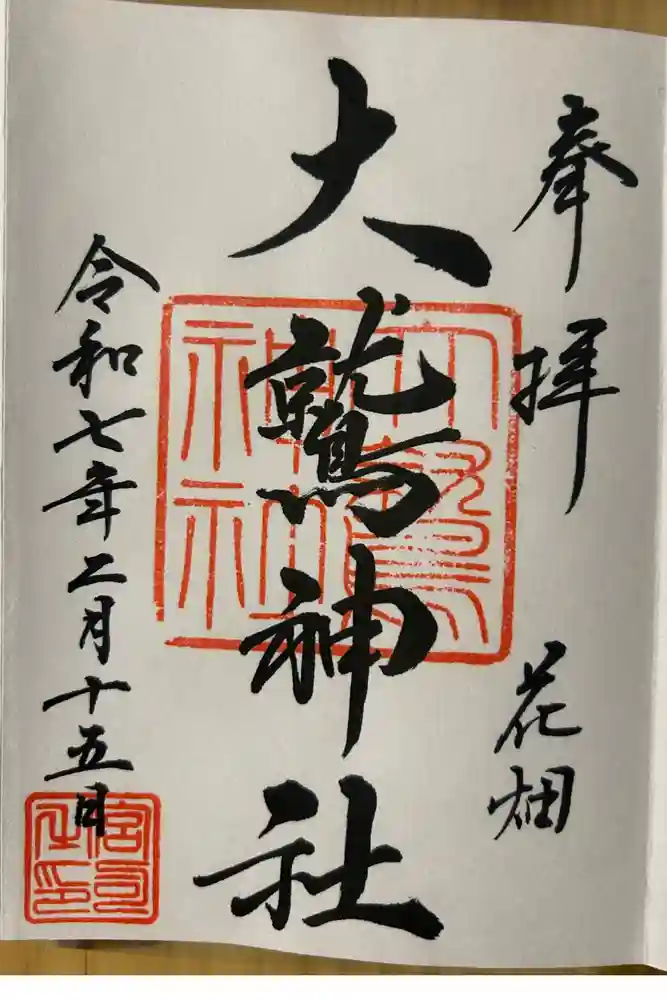 奉拝
花畑
大鷲神社
大鷲神社
令和七年二月十五日
宮司之印